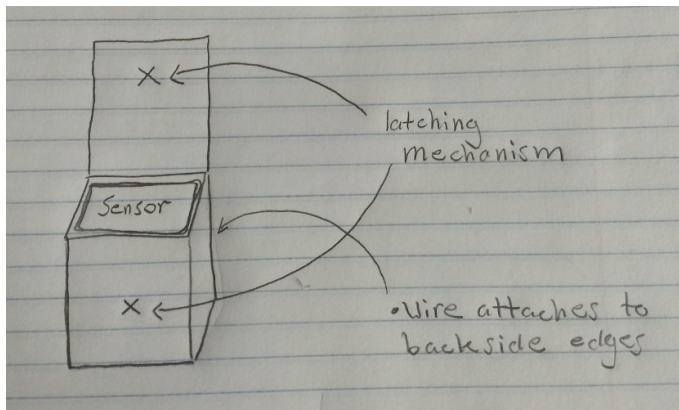 X
latching
mechanism
Sensor
X
•Wire attaches to
backside edges